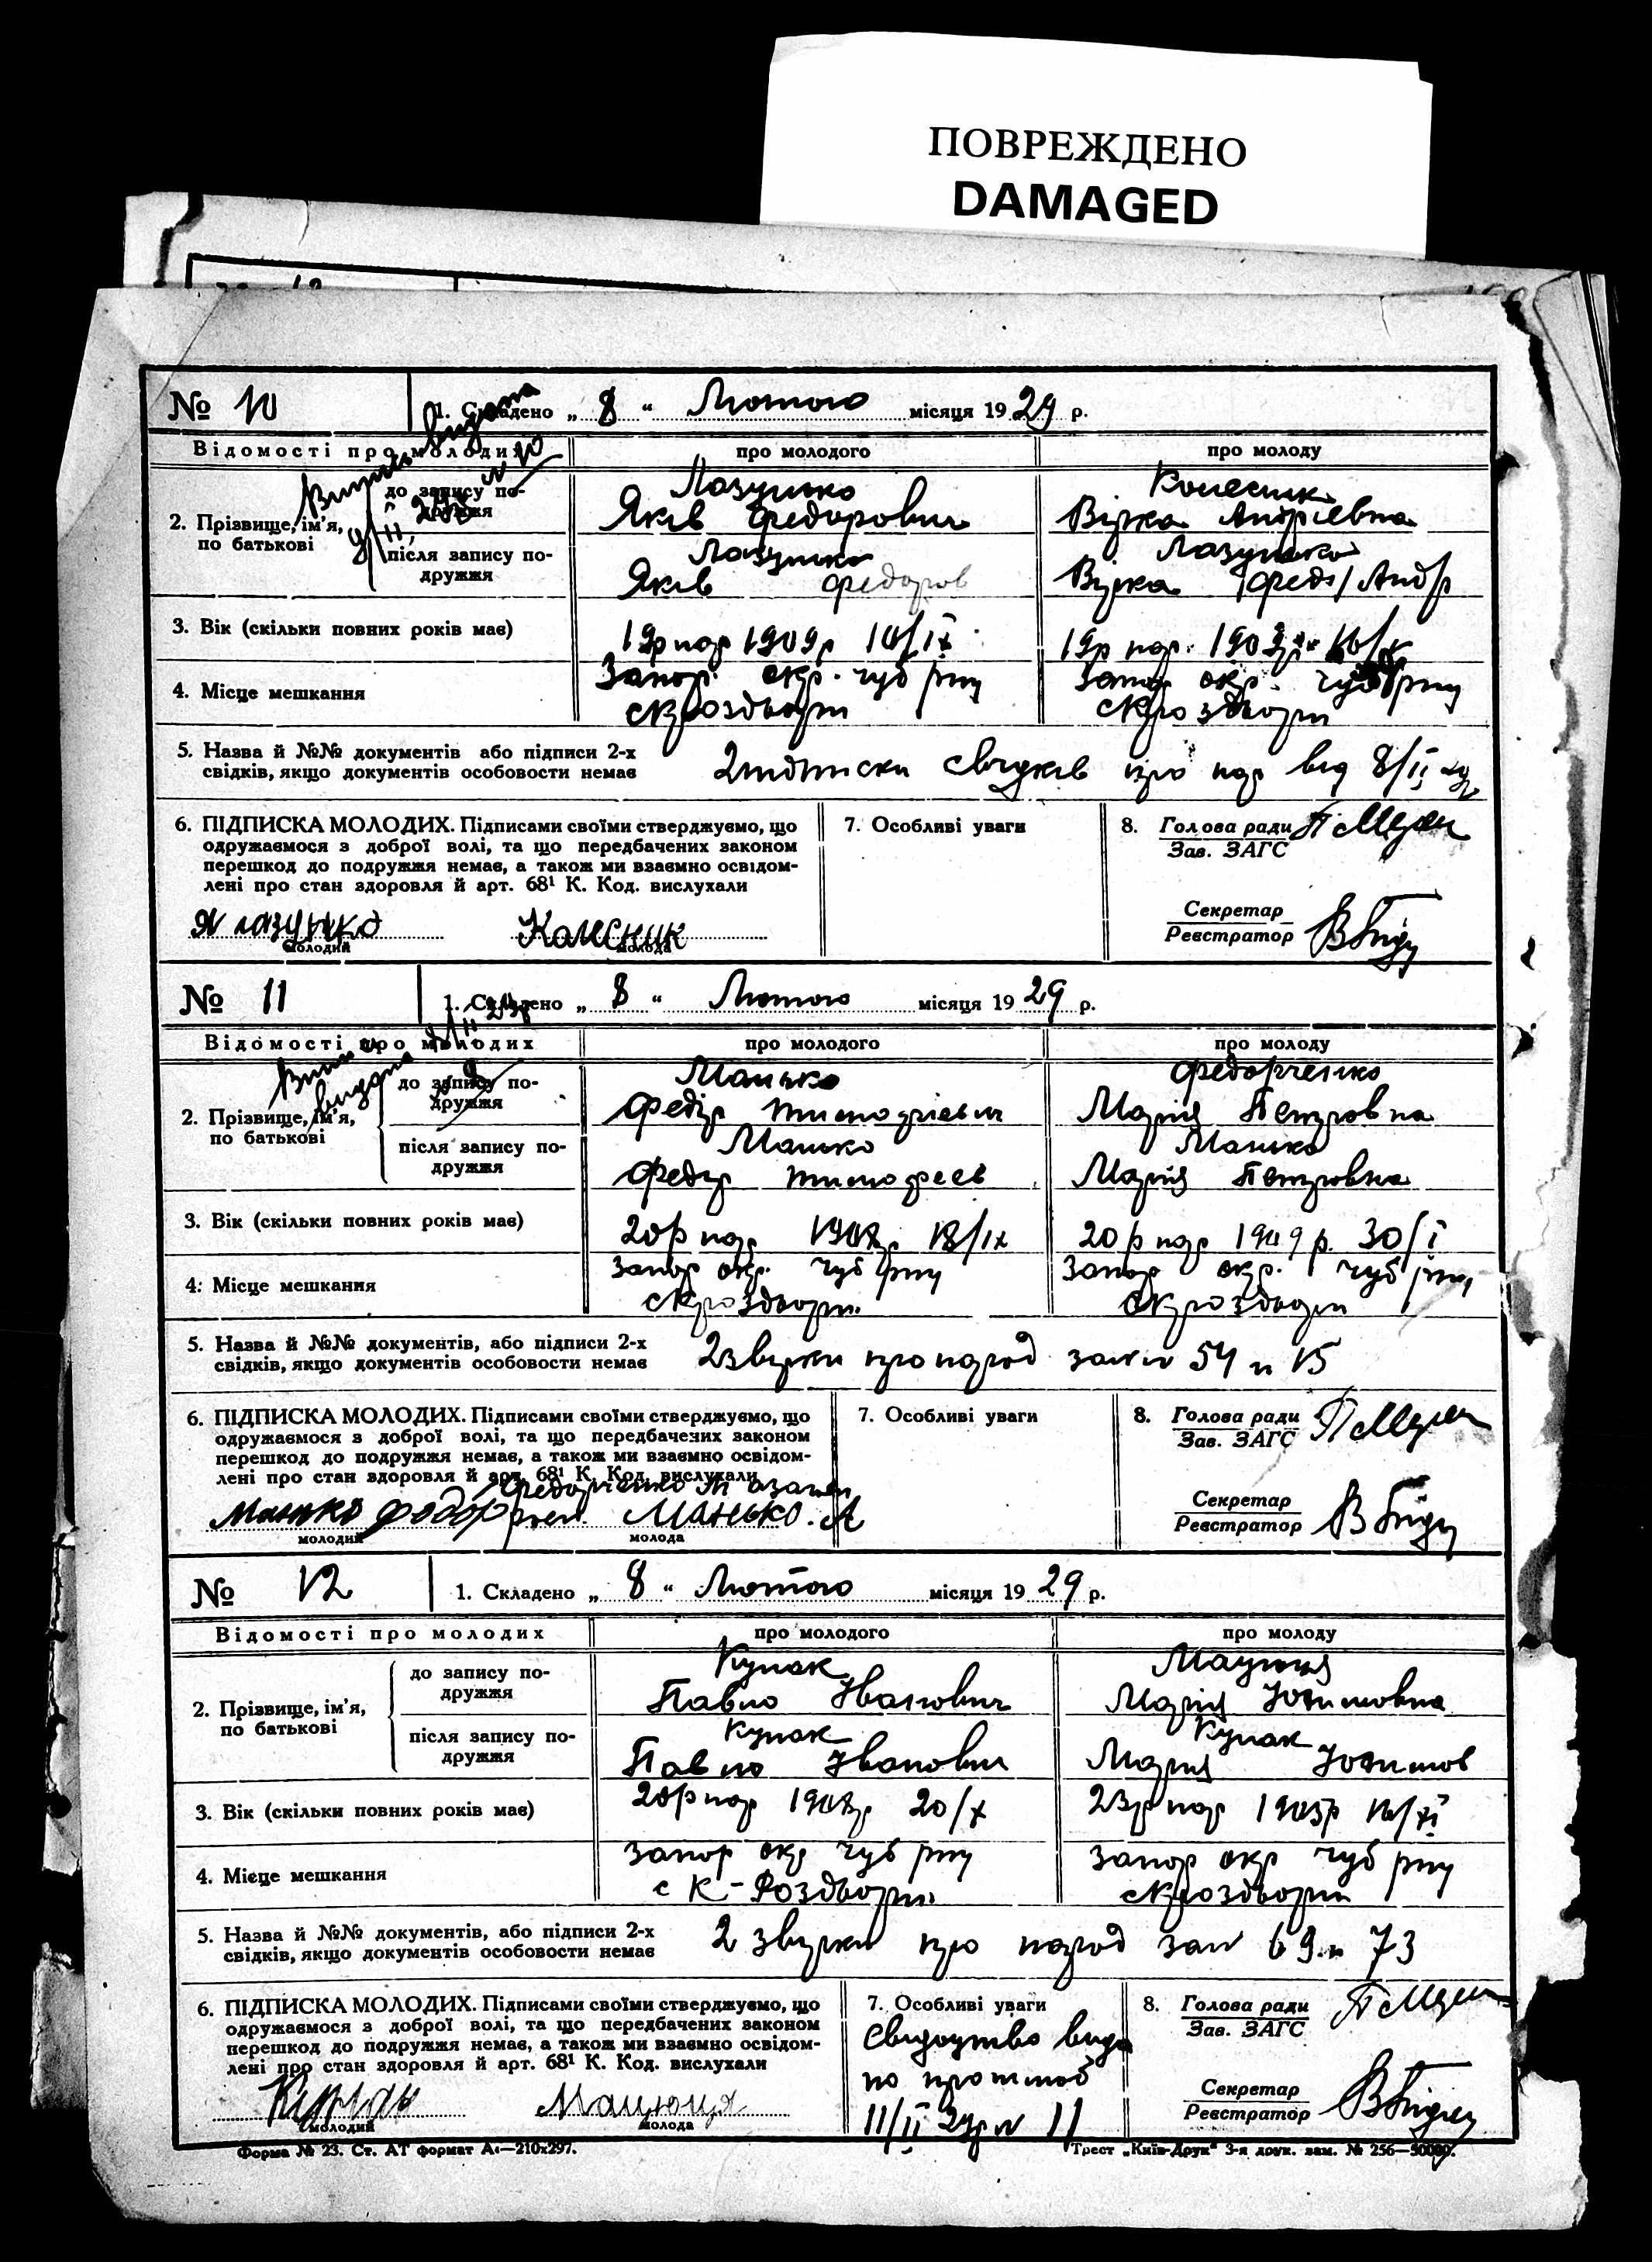 ПОВРЕЖДЕНО
DAMAGED
№ 10
1. Складено „ 8 “ Лютого місяця 1929 р.
Відомості про молодих
про молодого
про молоду
2. Прізвище, ім’я, по батькові
до запису по-
дружжя
Лазунько
Яків Федорович
Колесник
Вірка Андрієвна
після запису по-
дружжя
Лазунько
Яків Федоров
Лазунько
Вірка /Федо/ Андр
3. Вік (скільки повних років має)
19р нар 1909р 10/IX
19р нар. 1909р
4. Місце мешкання
Запор. окр. чуб рну
скроздворн
Запор окр. чуб рну
скроздворн
5. Назва й №№ документів або підписи 2-х
свідків, якщо документів особовости немає
2 підписки свідків про нар від 8/II
6. ПІДПИСКА МОЛОДИХ. Підписами своїми стверджуємо, що
одружаємося з доброї волі, та що передбачених законом
перешкод до подружжя немає, а також ми взаємно освідом-
лені про стан здоровля й арт. 68¹ К. Код. вислухали
Я лазунко
молодий
Колесник
молода
7. Особливі уваги
8. Голова ради
Зав. ЗАГС
Секретар
Реєстратор
№ 11
1. Складено „ 8 “ Лютого місяця 1929 р.
Відомості про молодих
про молодого
про молоду
2. Прізвище, ім’я, по батькові
до запису по-
дружжя
Манько
Федір тимофієвич
Федорченко
Марія Петровна
після запису по-
дружжя
Манько
Федір тимофеев
Манько
Марія Петровна
3. Вік (скільки повних років має)
20р нар 1908р 18/IX
20р нар 1909 р. 30/I
4. Місце мешкання
Запор окр. чуб рну
скроздворн.
Запор окр. чуб рну
скроздворн
5. Назва й №№ документів, або підписи 2-х
свідків, якщо документів особовости немає
2 звірки про народ зап № 54 и 15
6. ПІДПИСКА МОЛОДИХ. Підписами своїми стверджуємо, що
одружаємося з доброї волі, та що передбачених законом
перешкод до подружжя немає, а також ми взаємно освідом-
лені про стан здоровля й арт. 68¹ К. Код. вислухали
Федорченко
Манько Федор
молодий
Манько. А
молода
7. Особливі уваги
8. Голова ради
Зав. ЗАГС
Секретар
Реєстратор
№ 12
1. Складено „ 8 “ Лютого місяця 1929 р.
Відомості про молодих
про молодого
про молоду
2. Прізвище, ім’я, по батькові
до запису по-
дружжя
Купак
Павло Іванович
Мацюця
Марія Юхимовна
після запису по-
дружжя
Купак
Павло Іванович
Купак
Марія Юхимов
3. Вік (скільки повних років має)
20р нар 1908р 20/X
23р нар 1905р 16/XI
4. Місце мешкання
запор окр чуб рну
с К-Роздворн.
запор окр чуб рну
скроздворн
5. Назва й №№ документів, або підписи 2-х
свідків, якщо документів особовости немає
2 звірки про народ зап № 69 и 73
6. ПІДПИСКА МОЛОДИХ. Підписами своїми стверджуємо, що
одружаємося з доброї волі, та що передбачених законом
перешкод до подружжя немає, а також ми взаємно освідом-
лені про стан здоровля й арт. 68¹ К. Код. вислухали
молодий
Мацюця
молода
7. Особливі уваги
Свидоцтво вида
по
11/II 29р № 11
8. Голова ради
Зав. ЗАГС
Секретар
Реєстратор
Форма № 23. Ст. АТ формат А₄—210х297.
Трест „Київ-Друк“ 3-я друк. зам. № 256—50000.